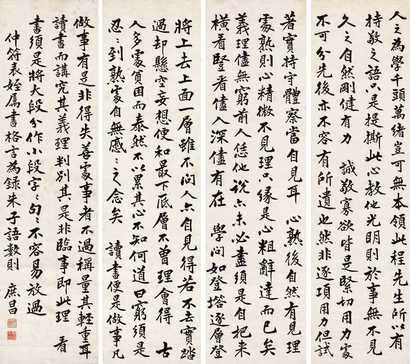 人之為學千頭萬緒豈可無本領此程先生所以有
持敬之語只是提撕此心教他光明則於事無不見
久之自然剛健有力 誠敬寡欲時是緊切用力處
不可分先後亦不容有所遺也然非逐項用力但試
著實持守體察當自見耳 心熟後自然有見理
處熟則心精微不見理只緣是心粗辭達而已矣
義理儘無窮前人恁他說亦未必盡須是自把來
橫看豎看儘入深儘有在 學問如登塔逐層登
將上去上面一層雖不問人亦自見得若不去實踏
過却懸空妄想便和最下底層不曾理會得 古
人多處貧困而泰然不以累其心不知何道曰窮須是
忍〻到熟處自無慼〻之念矣 讀書便是做事凡
做事有是非得失善處事者不過稱量其輕重耳
讀書而講究其義理判別其是非臨事即此理 看
書須是將大段分作小段字〻句〻不容易放過
仲符表姪屬書格言為錄朱子語數則 庶昌